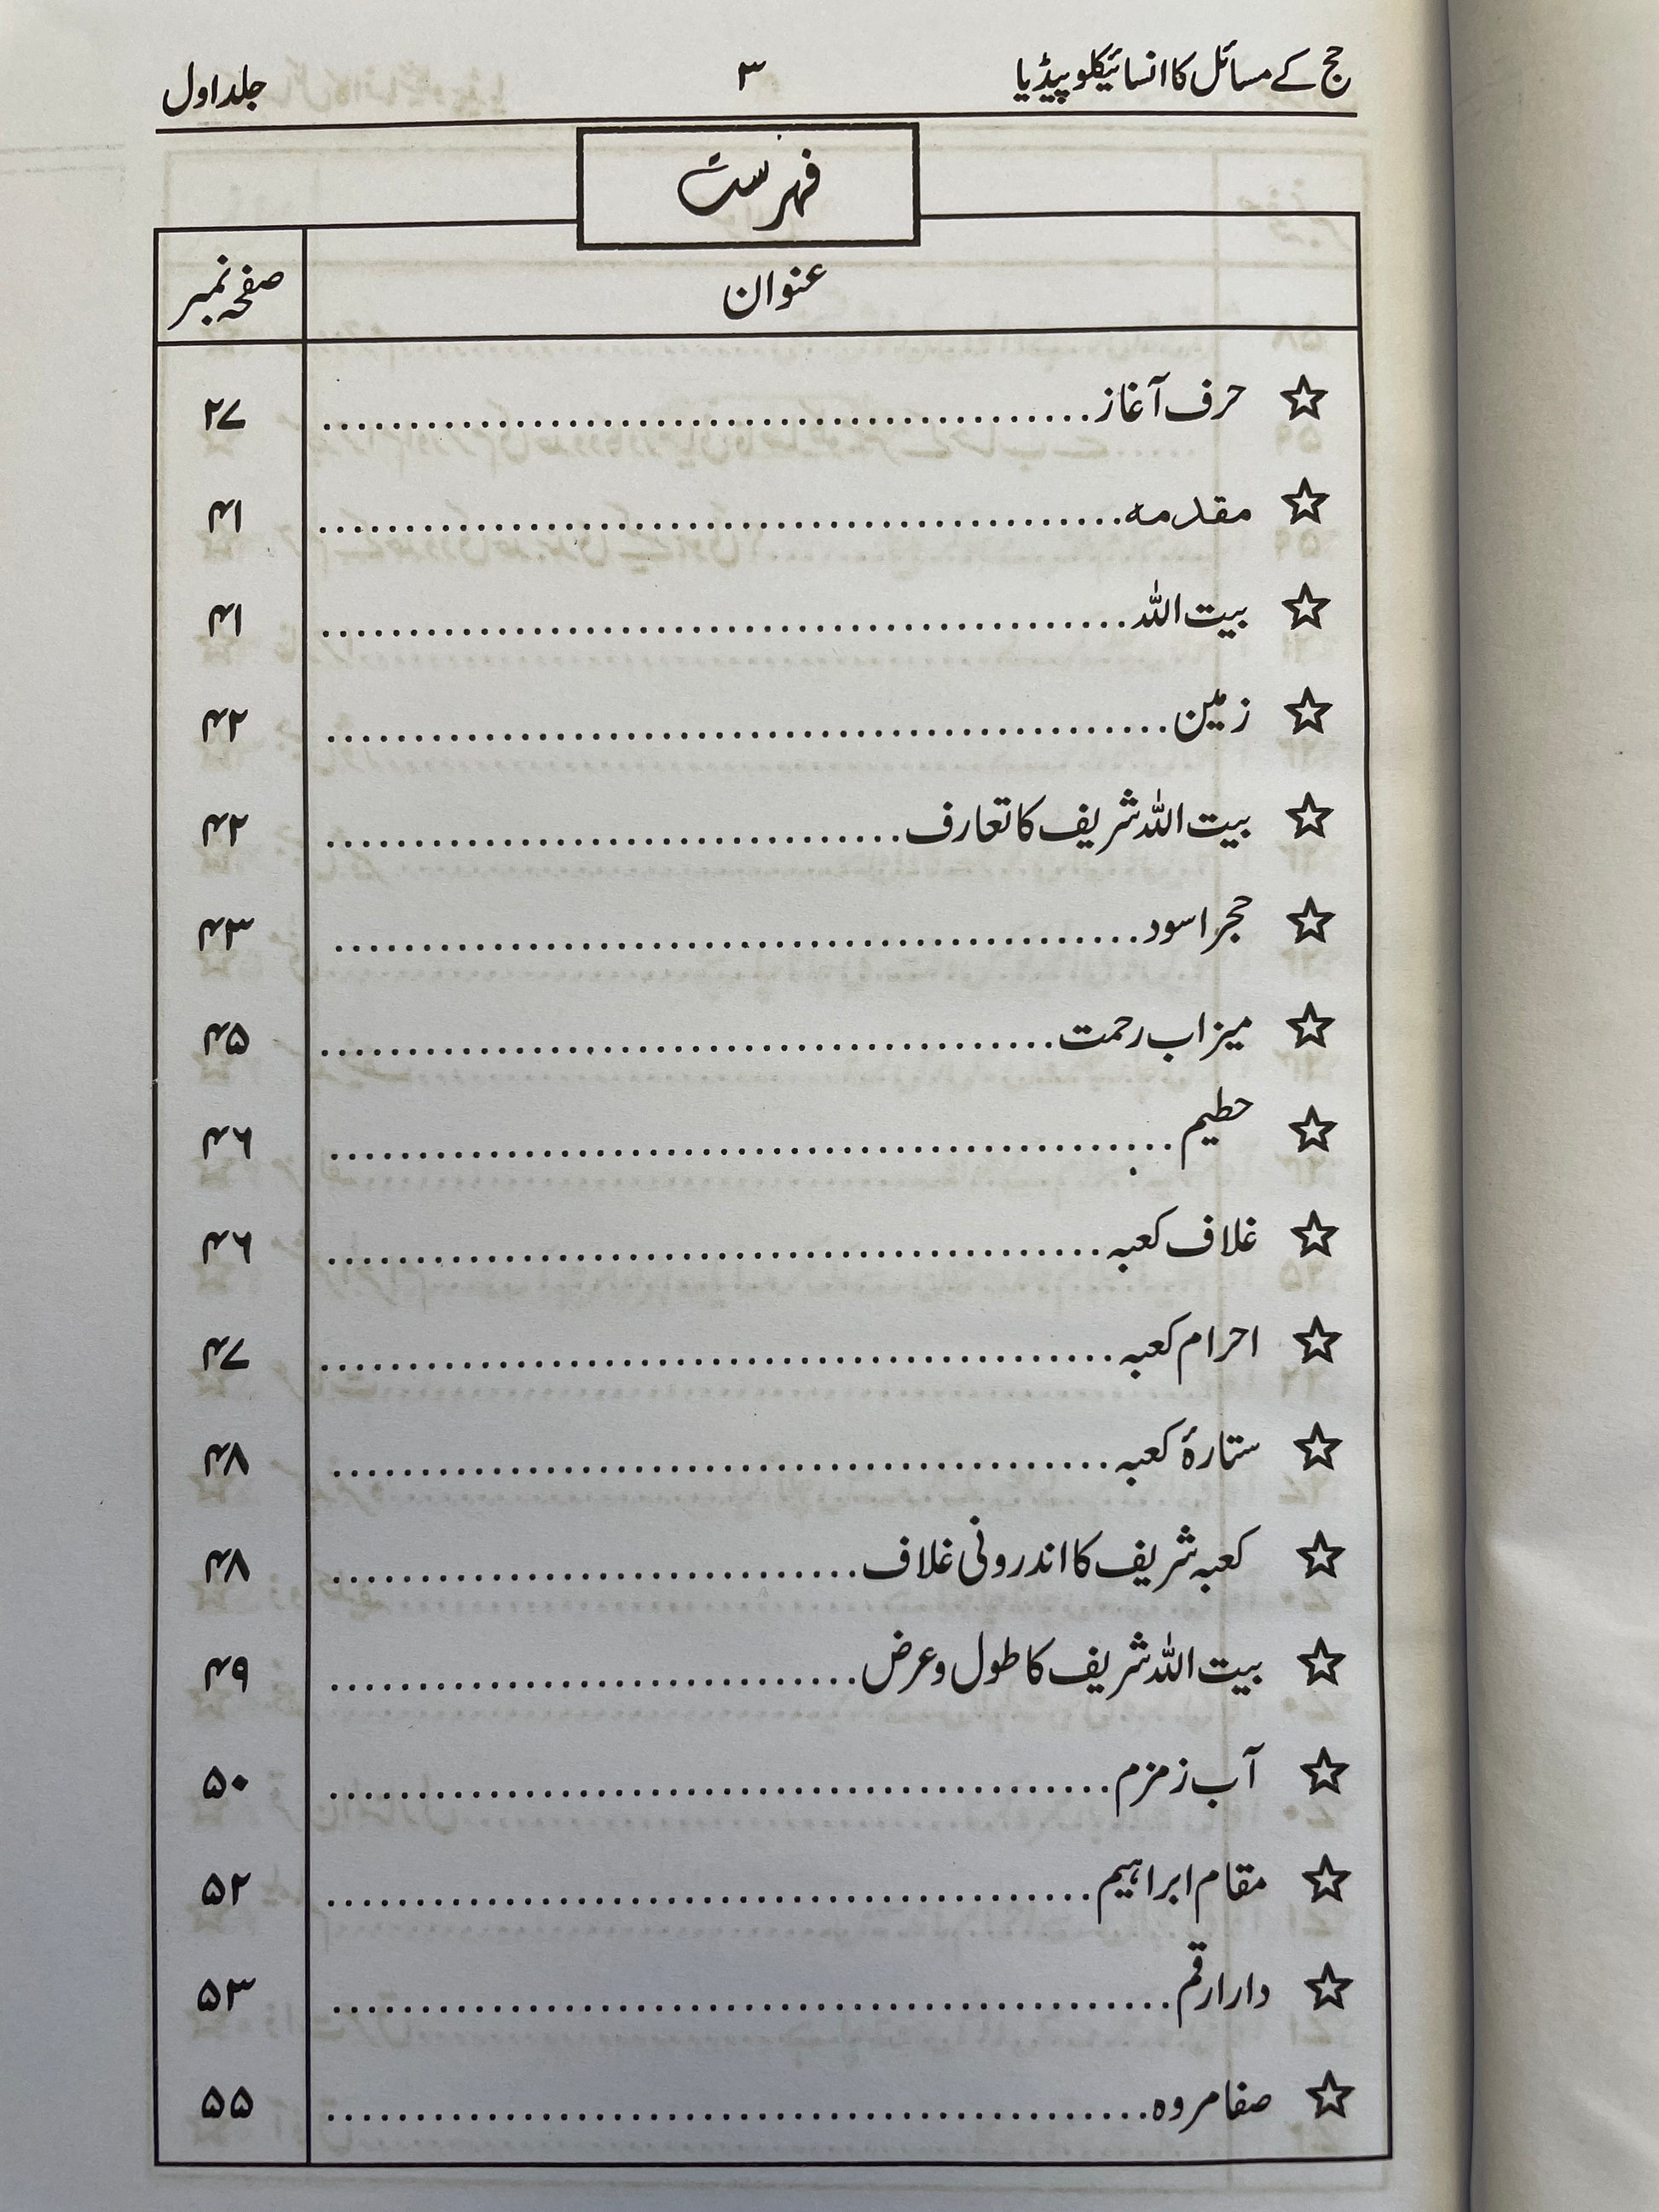 حج کے مسائل کا انسائیکلوپیڈیا ۳ جلد اول
فہرست
عنوان صفحہ نمبر
☆ حرف آغاز........................................ ۲۷
☆ مقدمہ........................................ ۴۱
☆ بیت اللہ........................................ ۴۱
☆ زمین........................................ ۴۲
☆ بیت اللہ شریف کا تعارف........................................ ۴۲
☆ حجر اسود........................................ ۴۳
☆ میزاب رحمت........................................ ۴۵
☆ حطیم........................................ ۴۶
☆ غلاف کعبہ........................................ ۴۶
☆ احرام کعبہ........................................ ۴۷
☆ ستارۂ کعبہ........................................ ۴۸
☆ کعبہ شریف کا اندرونی غلاف........................................ ۴۸
☆ بیت اللہ شریف کا طول وعرض........................................ ۴۹
☆ آب زمزم........................................ ۵۰
☆ مقام ابراہیم........................................ ۵۲
☆ دار ارقم........................................ ۵۳
☆ صفا مروہ........................................ ۵۵